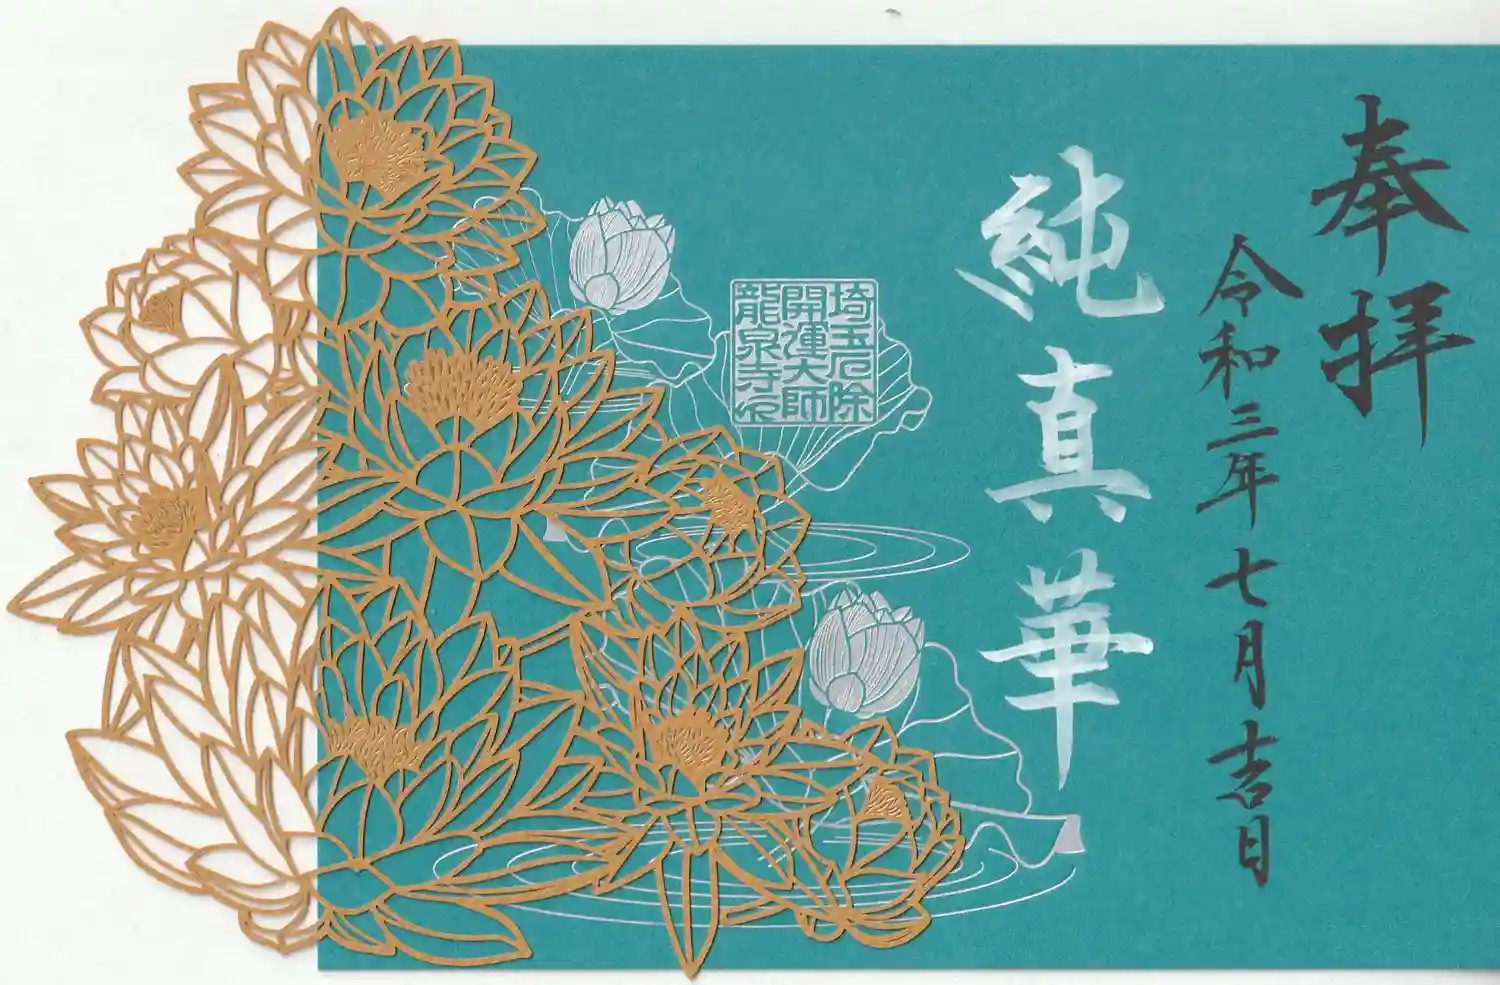 奉拝
令和三年七月吉日
純真華
埼玉厄除
開運大師
龍泉寺印